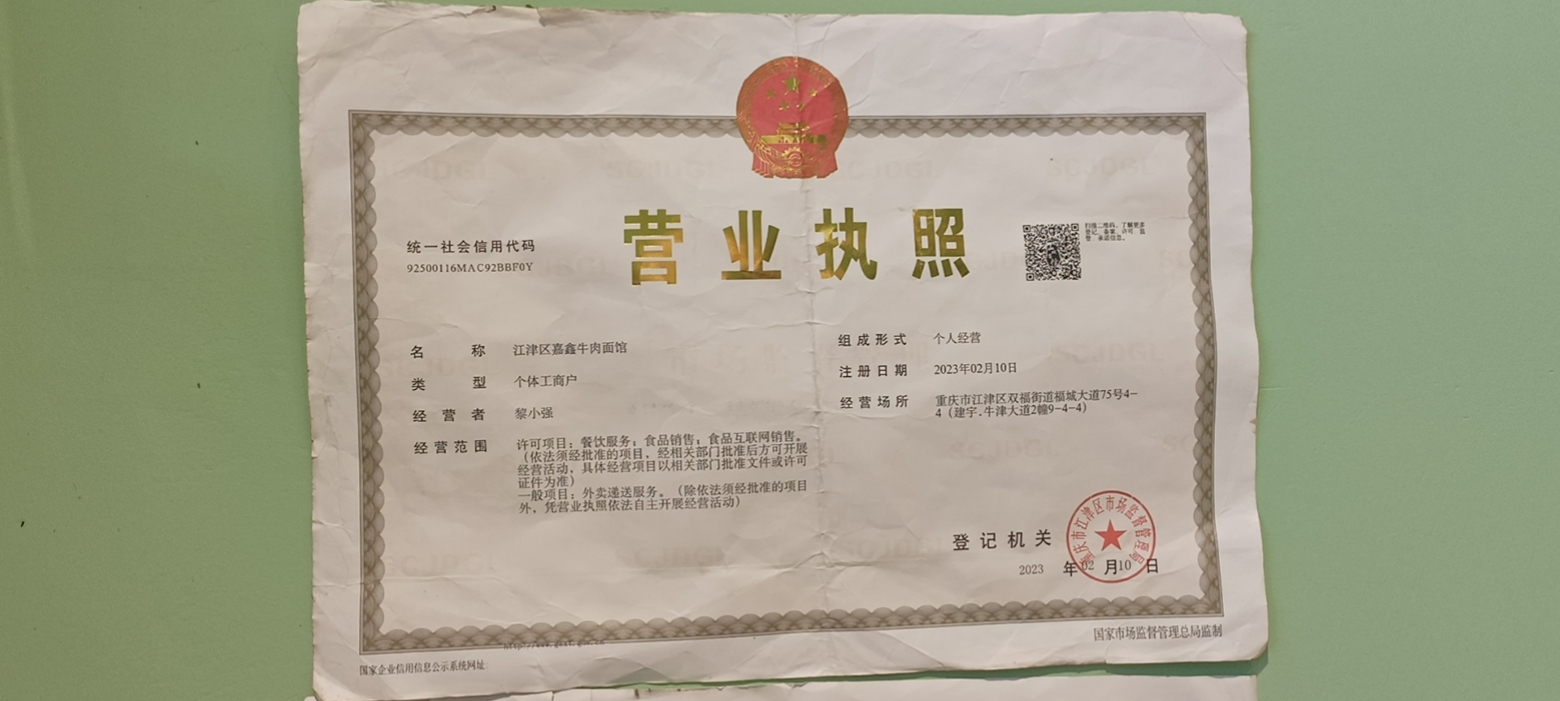 营业执照
统一社会信用代码
92500116MAC92BBF0Y
扫描二维码,了解更多
登记、备案、许可、监
管、承诺信息。
名 称 江津区嘉鑫牛肉面馆
类 型 个体工商户
经营者 黎小强
经营范围 许可项目:餐饮服务;食品销售;食品互联网销售。
(依法须经批准的项目,经相关部门批准后方可开展
经营活动,具体经营项目以相关部门批准文件或许可
证件为准)
一般项目:外卖递送服务。(除依法须经批准的项目
外,凭营业执照依法自主开展经营活动)
组成形式 个人经营
注册日期 2023年02月10日
经营场所 重庆市江津区双福街道福城大道75号4-
4(建宇.牛津大道2幢9-4-4)
登记机关
重庆市江津区市场监督管理局
2023 年02 月10 日
国家企业信用信息公示系统网址:
国家市场监督管理总局监制
SCJDGL